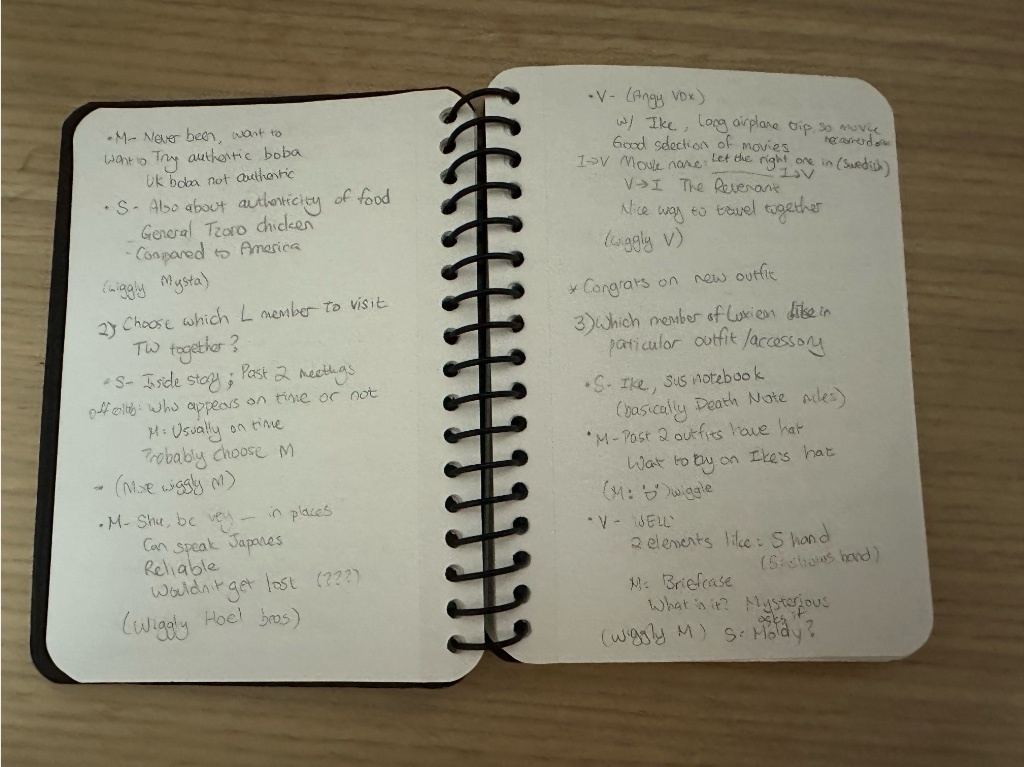 • M- Never been, want to
Want to Try authentic boba
UK boba not authentic
• S- Also about authenticity of food
General Tzoro chicken
- Compared to America
(wiggly Mysta)
2) Choose which L member to visit
TW together?
• S- Inside story; Past 2 meetings
who appears on time or not
M: Usually on time
Probably choose M
- (More wiggly M)
• M- Shu, be very — in places
Can speak Japanes
Reliable
Wouldn't get lost (???)
(Wiggly Hoel bros)
• V- (Angy Vox)
w/ Ike, Long airplane trip, so movie
recommendation
Good selection of movies
I→V Movie name: Let the right one in (Swedish)
I→V
V→I The Revenant
Nice way to travel together
(wiggly V)
* Congrats on new outfit
3) Which member of Luxiem like in
particular outfit/accessory
• S- Ike, sus notebook
(basically Death Note rules)
• M- Past 2 outfits have hat
Wat to try on Ike's hat
(M: ) wiggle
• V- WELL
2 elements like: S hand
(S: shows hand)
M: Briefcase
What is it? Mysterious
asks if
(wiggly M) S: Moldy?